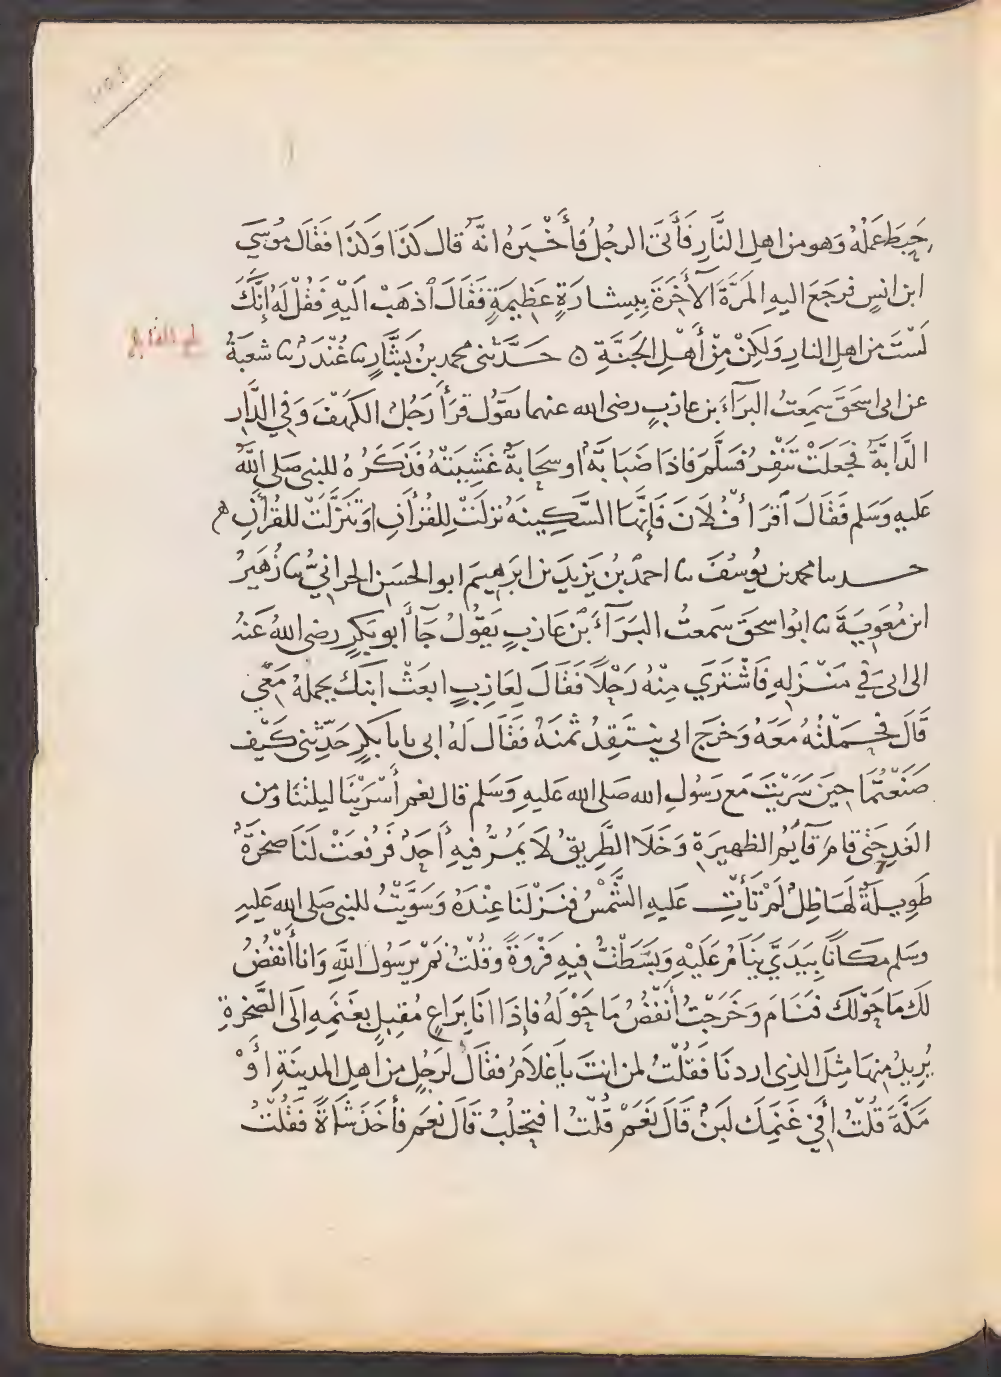 حَبِطَ عَمَلُهُ وَهو من اهلِ النَّارِ فَأَتَى الرجُلُ فَأَخْبَرَهُ انَّهُ قال كَذَا وَكَذَا فقَال مُوسَى
ابن انسٍ فرجَعَ اليهِ المَرَّةَ الآخِرَةَ بِبِشارَةٍ عَظِيمَةٍ فَقَالَ اذهَبْ الَيْهِ فَقُلْ لَهُ إِنَّكَ
لَسْتَ من اهلِ النارِ وَلَكِنْ مِنْ أَهْلِ الجَنَّةِ ه حَدَّثنى محمد بنُ بَشَّارٍ ثنا غُنْدَرٌ ثنا شعبَةُ
عن ابى اسحَقَ سَمِعتُ البَرآءَ بن عازبٍ رضى الله عنهما يقُول قرَأَ رَجُلُ الكَهْفَ وَفِي الدَّارِ
الدَّابَّةُ فجَعَلَتْ تَنْفِرُ فسَلَّمَ فاذَا ضَبَابَةٌ او سحَابَةٌ غَشِيَتْهُ فَذَكَرَهُ للنبى صَلى اللهُ
عَليهِ وَسَلم فَقَالَ اقرَأ فُلَانُ فَإِنَّهَا السَّكِينَةُ نزلَتْ لِلقُرْأَنِ او تَنَزَّلَتْ للقُرْأَنِ
حدثنا محمد بن يُوسُفَ ثنا احمدُ بنُ يَزِيدَ بن ابرَهِيمَ ابو الحَسَنِ الحرانِيُّ ثنا زُهَيرُ
ابن مُعَوِيَةَ ثنا ابُوا سحقَ سَمعتُ البَرَآءَ بْنَ عَازبٍ يَقُولُ جَآءَ أَبو بَكرٍ رضى اللهُ عَنهُ
الى ابى فِي مَنْزِلهِ فَاشْتَرَي مِنْهُ رَحْلًا فَقَالَ لِعَازِبٍ ابعَثْ ابنَكَ يحملْهُ مَعِي
قَالَ فحَمَلْتُهُ مَعَهُ وَخرَجَ ابى يَنتَقِدُ ثمنَهُ فَقَال لَهُ ابى يا بابَكرٍ حَدِّثنِى كَيْف
صَنَعْتُمَا حِينَ سَرَيْتَ مَع رَسُولِ الله صَلى الله عَليهِ وَسَلم قال نعَم أَسْرَيْنَا ليلتَنَا ومن
الغَدِ حَتَّى قامَ قَآيِمُ الظهيرَةِ وَخَلَا الطَّرِيقُ لَا يَمُرُّ فِيهِ أَحَدٌ فَرُفعَتْ لَنَا صخرَةٌ
طَوِيلَةٌ لَهَا ظِلٌ لَمْ تَأْتِ عَليهِ الشَّمْسُ فنَزَلْنَا عِنْدَهُ وَسَوَّيْتُ للنبى صَلى الله عَليهِ
وسَلم مَكَانًا بِيَدَيَّ يَنَامُ عَلَيْهِ وَبَسَطْتُ فِيهِ فَرْوَةً وَقُلْتُ نَمْ يرَسُولَ اللَّهِ وَانا أَنْفُضُ
لَكَ مَا حَوْلَكَ فنَامَ وَخَرَجْتُ أَنفُضُ مَا حَوْلَهُ فإذَا انَا بِرَاعٍ مُقبِلٍ بِغَنَمِهِ الَى الصَّخرَةِ
يُرِيدُ مِنهَا مِثلَ الذى اردنَا فَقلْتُ لمن انتَ يا غلَامُ فقَالَ لرَجُلٍ من اهلِ المدينَةِ أَوْ
مَكَّةَ قُلْتُ أَفِي غَنَمِكَ لبَنٌ قَالَ نَعَمْ قُلْتُ افتَحْلُبُ قَالَ نَعَم فأَخَذَ شَاةً فَقُلْتُ